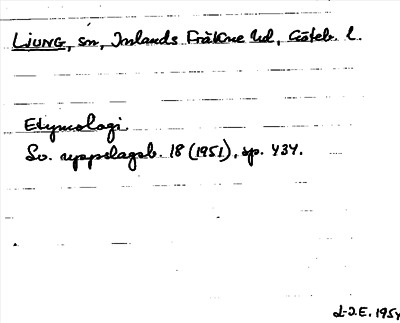 LJUNG, sn, Inlands Fräkne hd, Göteb. l.
Etymologi
Sv. uppslagsb. 18 (1951), sp. 434.
L-J.E. 1954